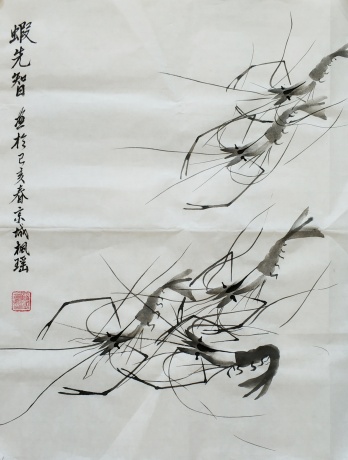 蝦先智
画於己亥春京城楓瑶